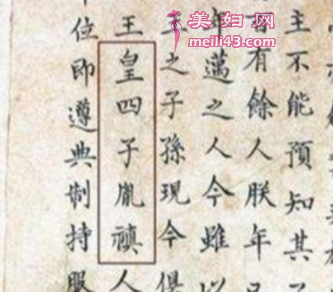 美妇网
meili43.com
主不能預知其
百有餘人朕年
年邁之人今雖以
之子孫現今俱
王皇四子胤禛人
位即遵典制持服